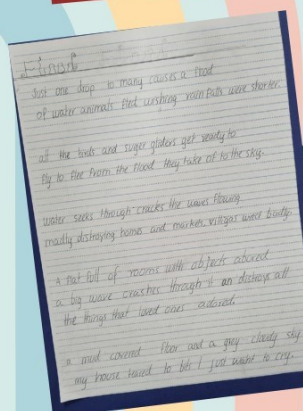 Flood
Just one drop to many causes a flood
of water animals fled wishing rain falls were shorter.
all the birds and suger gliders get ready to
fly to flee from the flood they take of to the sky.
water seeks through cracks the waves flowing
madly distroying homes and markets, villigas wrect badly
A hut full of rooms with objects adored
a big wave crashes through it an distroys all
the things that loved ones adored.
a mud covered floor and a grey cloudy sky
my house teared to bits I just want to cry.